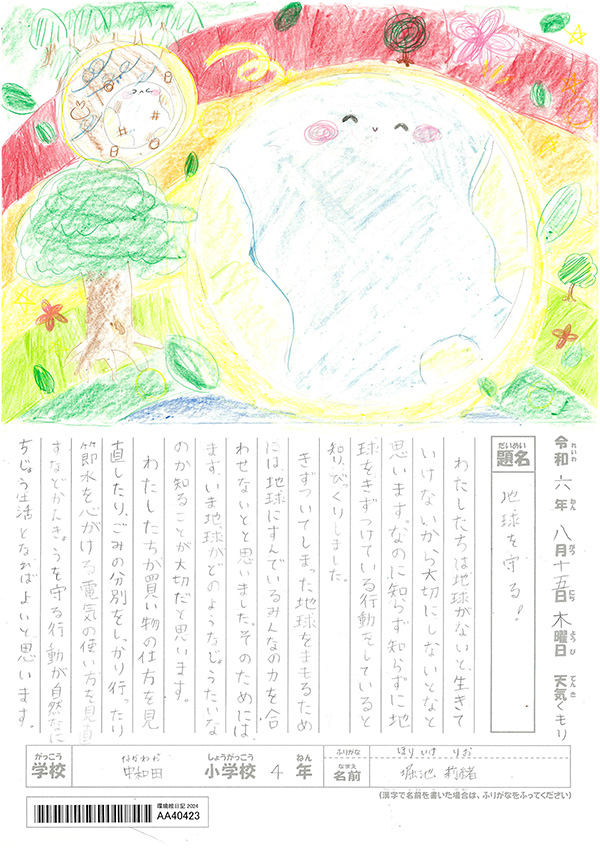 令和六年八月十五日木曜日 天気くもり
れいわ ねん がつ にち ようび てんき
題名
だいめい
地球を守る!
わたしたちは地球がないと、生きて
いけないから大切にしないとなと
思います。なのに知らず知らずに地
球をきずつけている行動をしていると
知り、びっくりしました。
きずついてしまった地球をまもるため
には地球にすんでいるみんなの力を合
わせないとと思いました。そのためには、
まず、いま地球がどのようなじょうたいな
のか知ることが大切だと思います。
わたしたちが買い物の仕方を見
直したり、ごみの分別をしっかり行ったり
節水を心がける、電気の使い方を見直
すなどかんきょうを守る行動が自然なに
ちじょう生活となればよいと思います。
がっこう
学校
なかわだ
中和田
しょうがっこう
小学校
4
ねん
年
ふりがな
ほりいけ りお
なまえ
名前
堀池 莉緒
(漢字で名前を書いた場合は、ふりがなをふってください)
環境絵日記 2024
AA40423